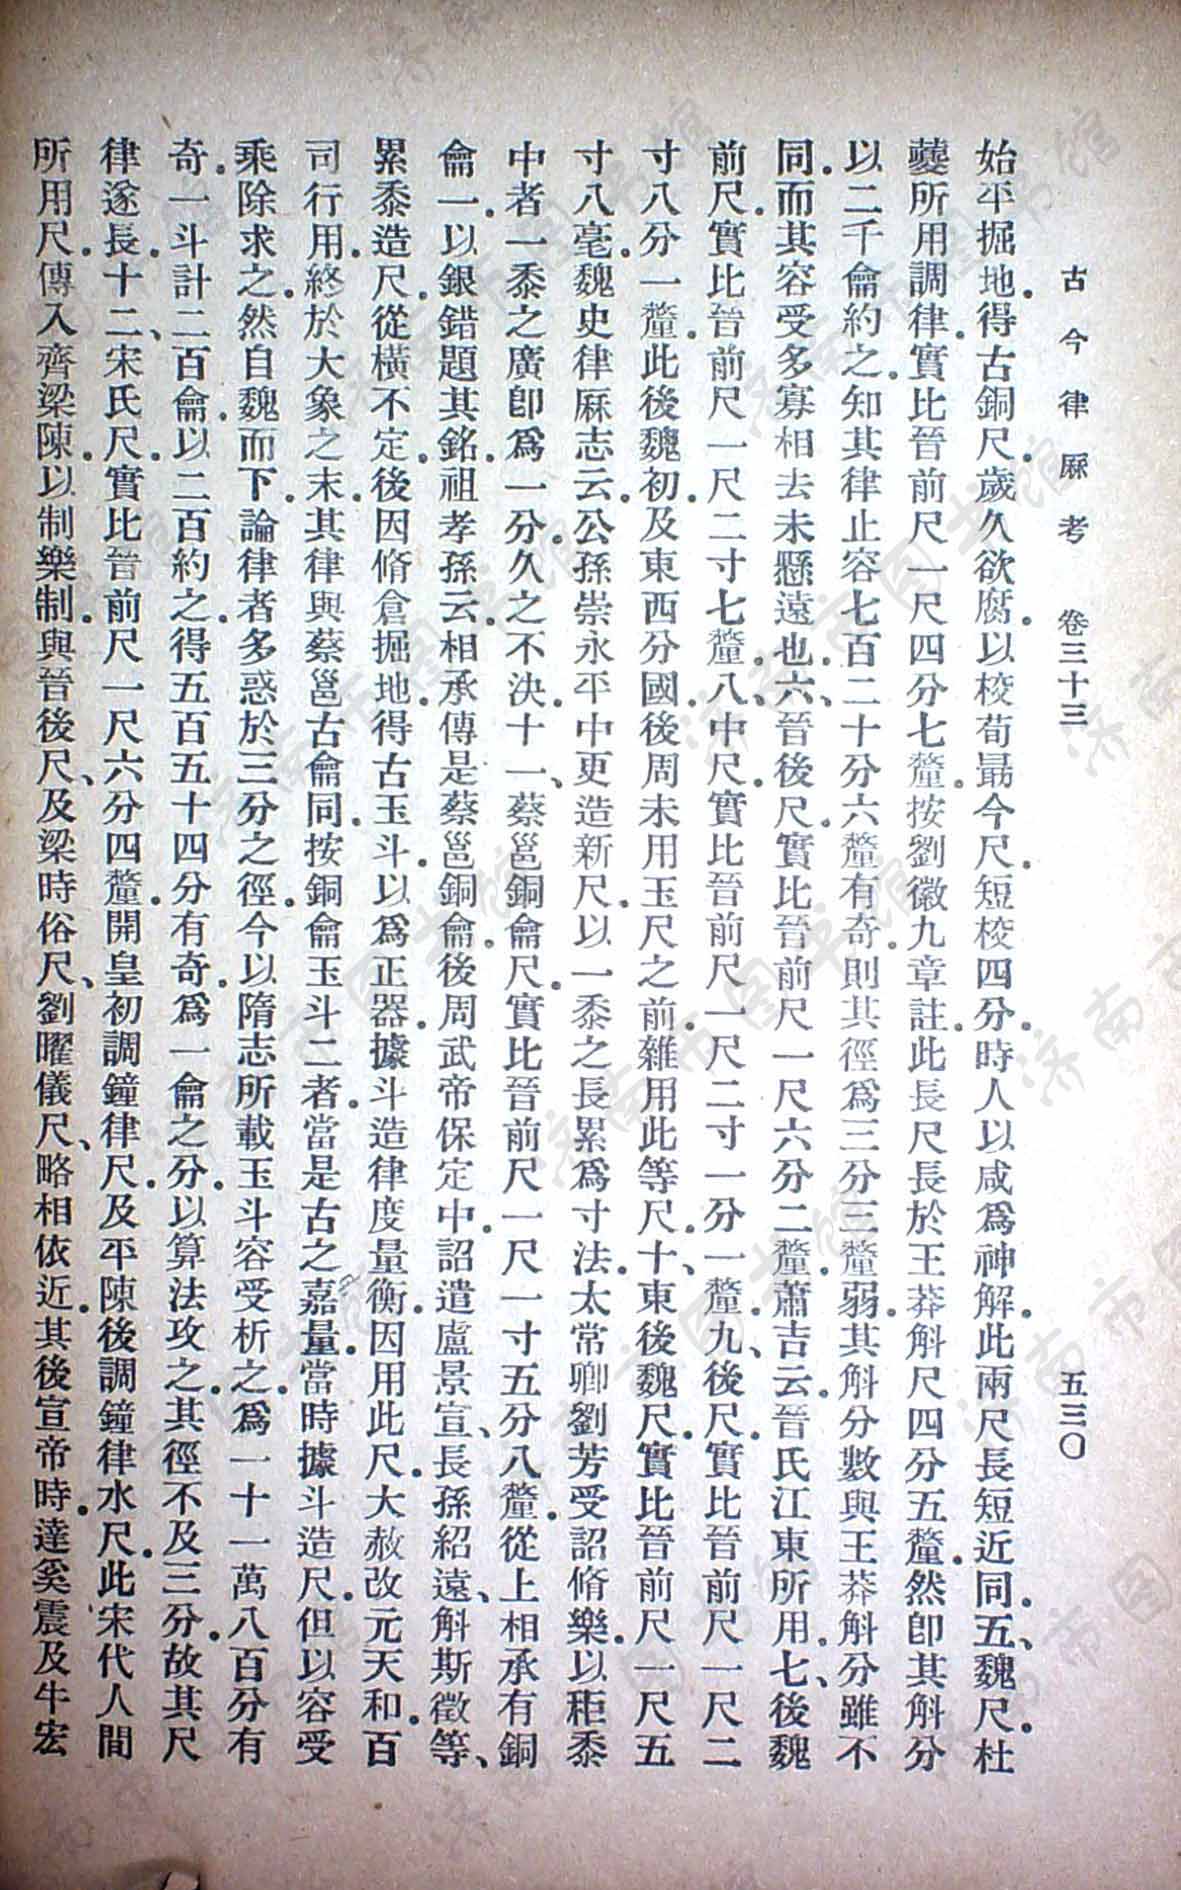 古今律厤考 卷三十三 五三〇
始平掘地。得古銅尺。歲久欲腐。以校荀勗今尺。短校四分。時人以咸爲神解。此兩尺長短近同。五、魏尺。杜
夔所用調律。實比晉前尺一尺四分七釐。按劉徽九章註。此長尺長於王莽斛尺四分五釐。然卽其斛分
以二千龠約之。知其律止容七百二十分六釐有奇。則其徑爲三分三釐弱。其斛分數與王莽斛分雖不
同。而其容受多寡相去未懸遠也。六、晉後尺。實比晉前尺一尺六分二釐。蕭吉云。晉氏江東所用。七、後魏
前尺。實比晉前尺一尺二寸七釐。八、中尺。實比晉前尺一尺二寸一分一釐。九、後尺。實比晉前尺一尺二
寸八分一釐。此後魏初。及東西分國。後周未用玉尺之前。雜用此等尺。十、東後魏尺。實比晉前尺一尺五
寸八毫。魏史律厤志云。公孫崇永平中更造新尺。以一黍之長累爲寸法。太常卿劉芳受詔脩樂。以秬黍
中者一黍之廣卽爲一分。久之不決。十一、蔡邕銅龠尺。實比晉前尺一尺一寸五分八釐。從上相承有銅
龠一。以銀錯題其銘。祖孝孫云。相承傳是蔡邕銅龠。後周武帝保定中。詔遣盧景宣、長孫紹遠、斛斯徵等、
累黍造尺。從橫不定。後因脩倉掘地。得古玉斗。以爲正器。據斗造律度量衡。因用此尺。大赦改元天和。百
司行用。終於大象之末。其律與蔡邕古龠同。按銅龠玉斗二者。當是古之嘉量。當時據斗造尺。但以容受
乘除求之。然自魏而下。論律者多惑於三分之徑。今以隋志所載玉斗容受析之。爲一十一萬八百分有
奇。一斗計二百龠。以二百約之。得五百五十四分有奇。爲一龠之分。以算法攻之。其徑不及三分。故其尺
律遂長。十二、宋氏尺。實比晉前尺一尺六分四釐。開皇初調鐘律尺。及平陳後調鐘律水尺。此宋代人間
所用尺。傳入齊梁陳。以制樂制。與晉後尺、及梁時俗尺、劉曜儀尺、略相依近。其後宣帝時。達奚震及牛宏